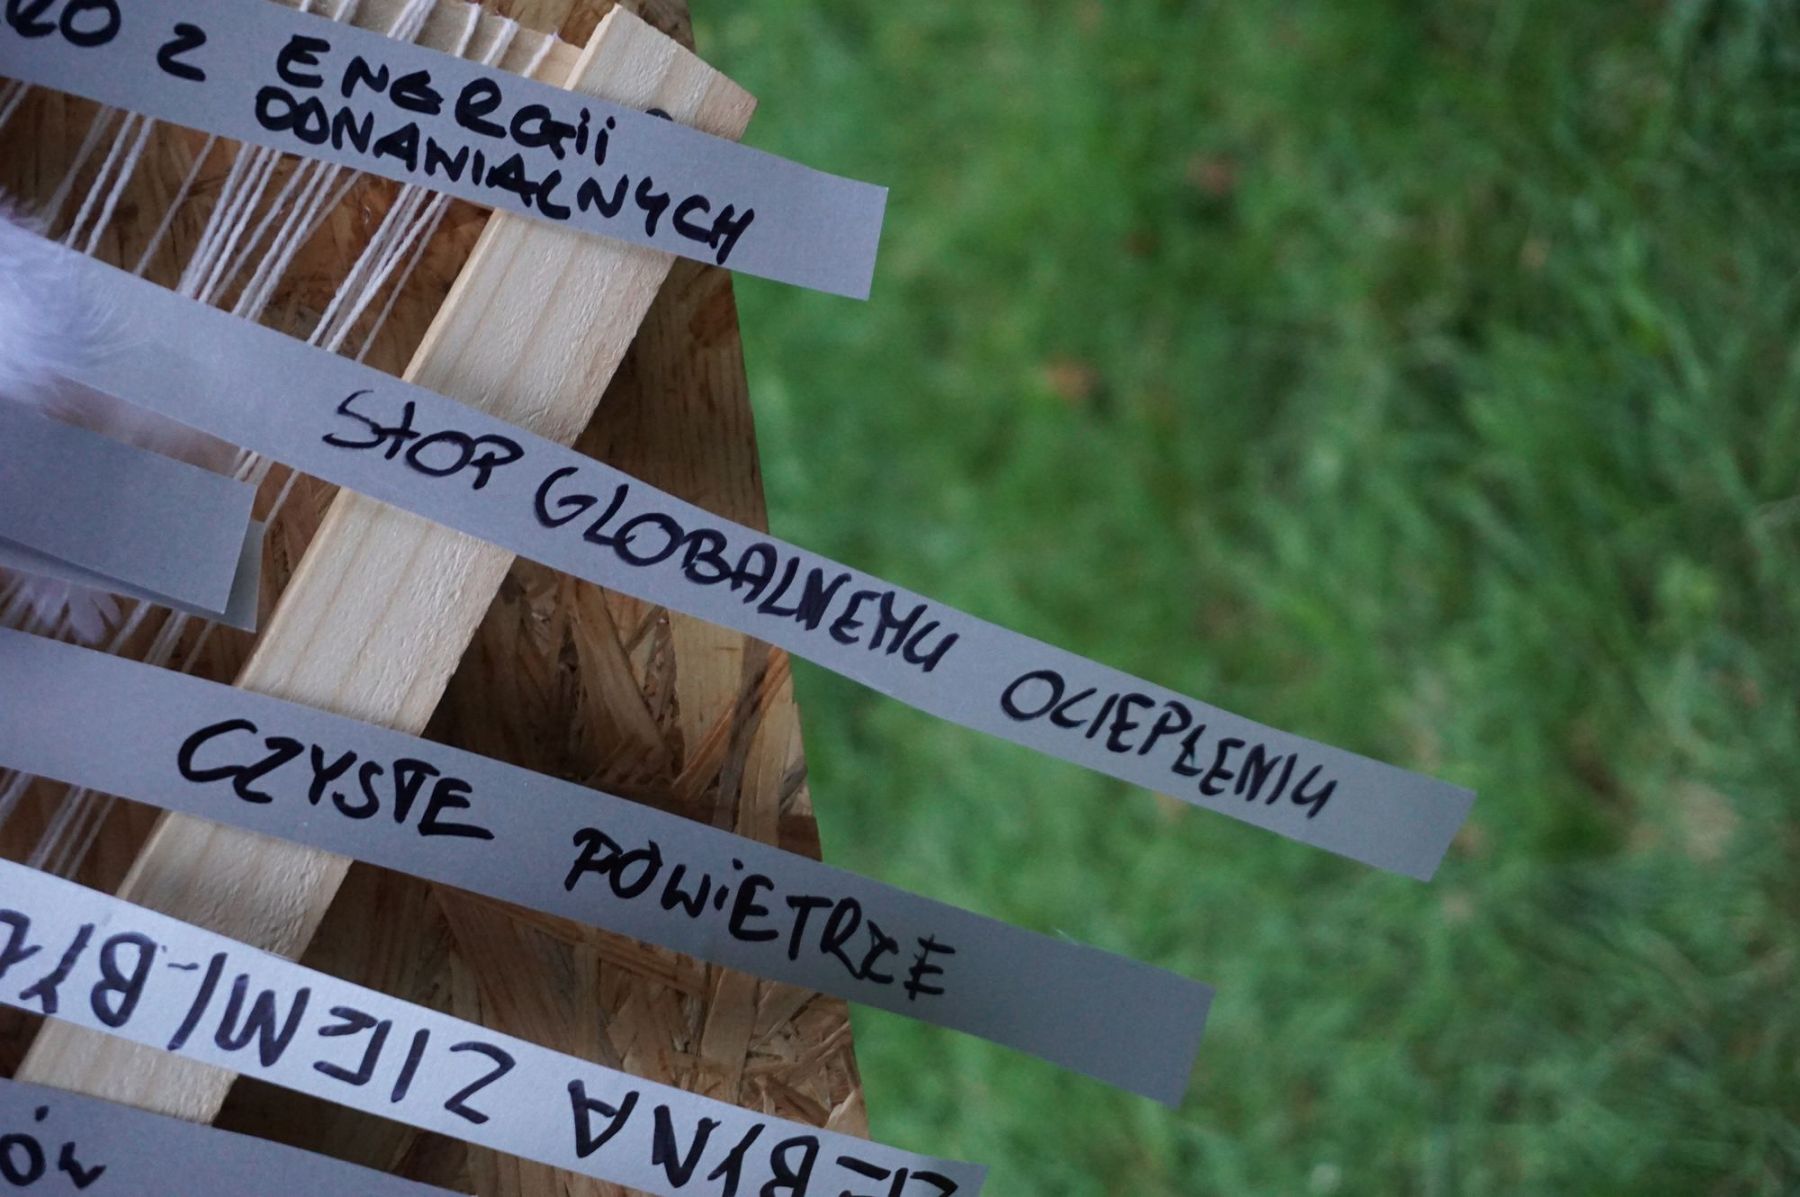 Z ENERGii
ODNAWIALNYCH
STOP GLOBALNEMU OCIEPLENIU
CZYSTE POWiETRZE
ŻEBY NA ZIEMI BYŁ